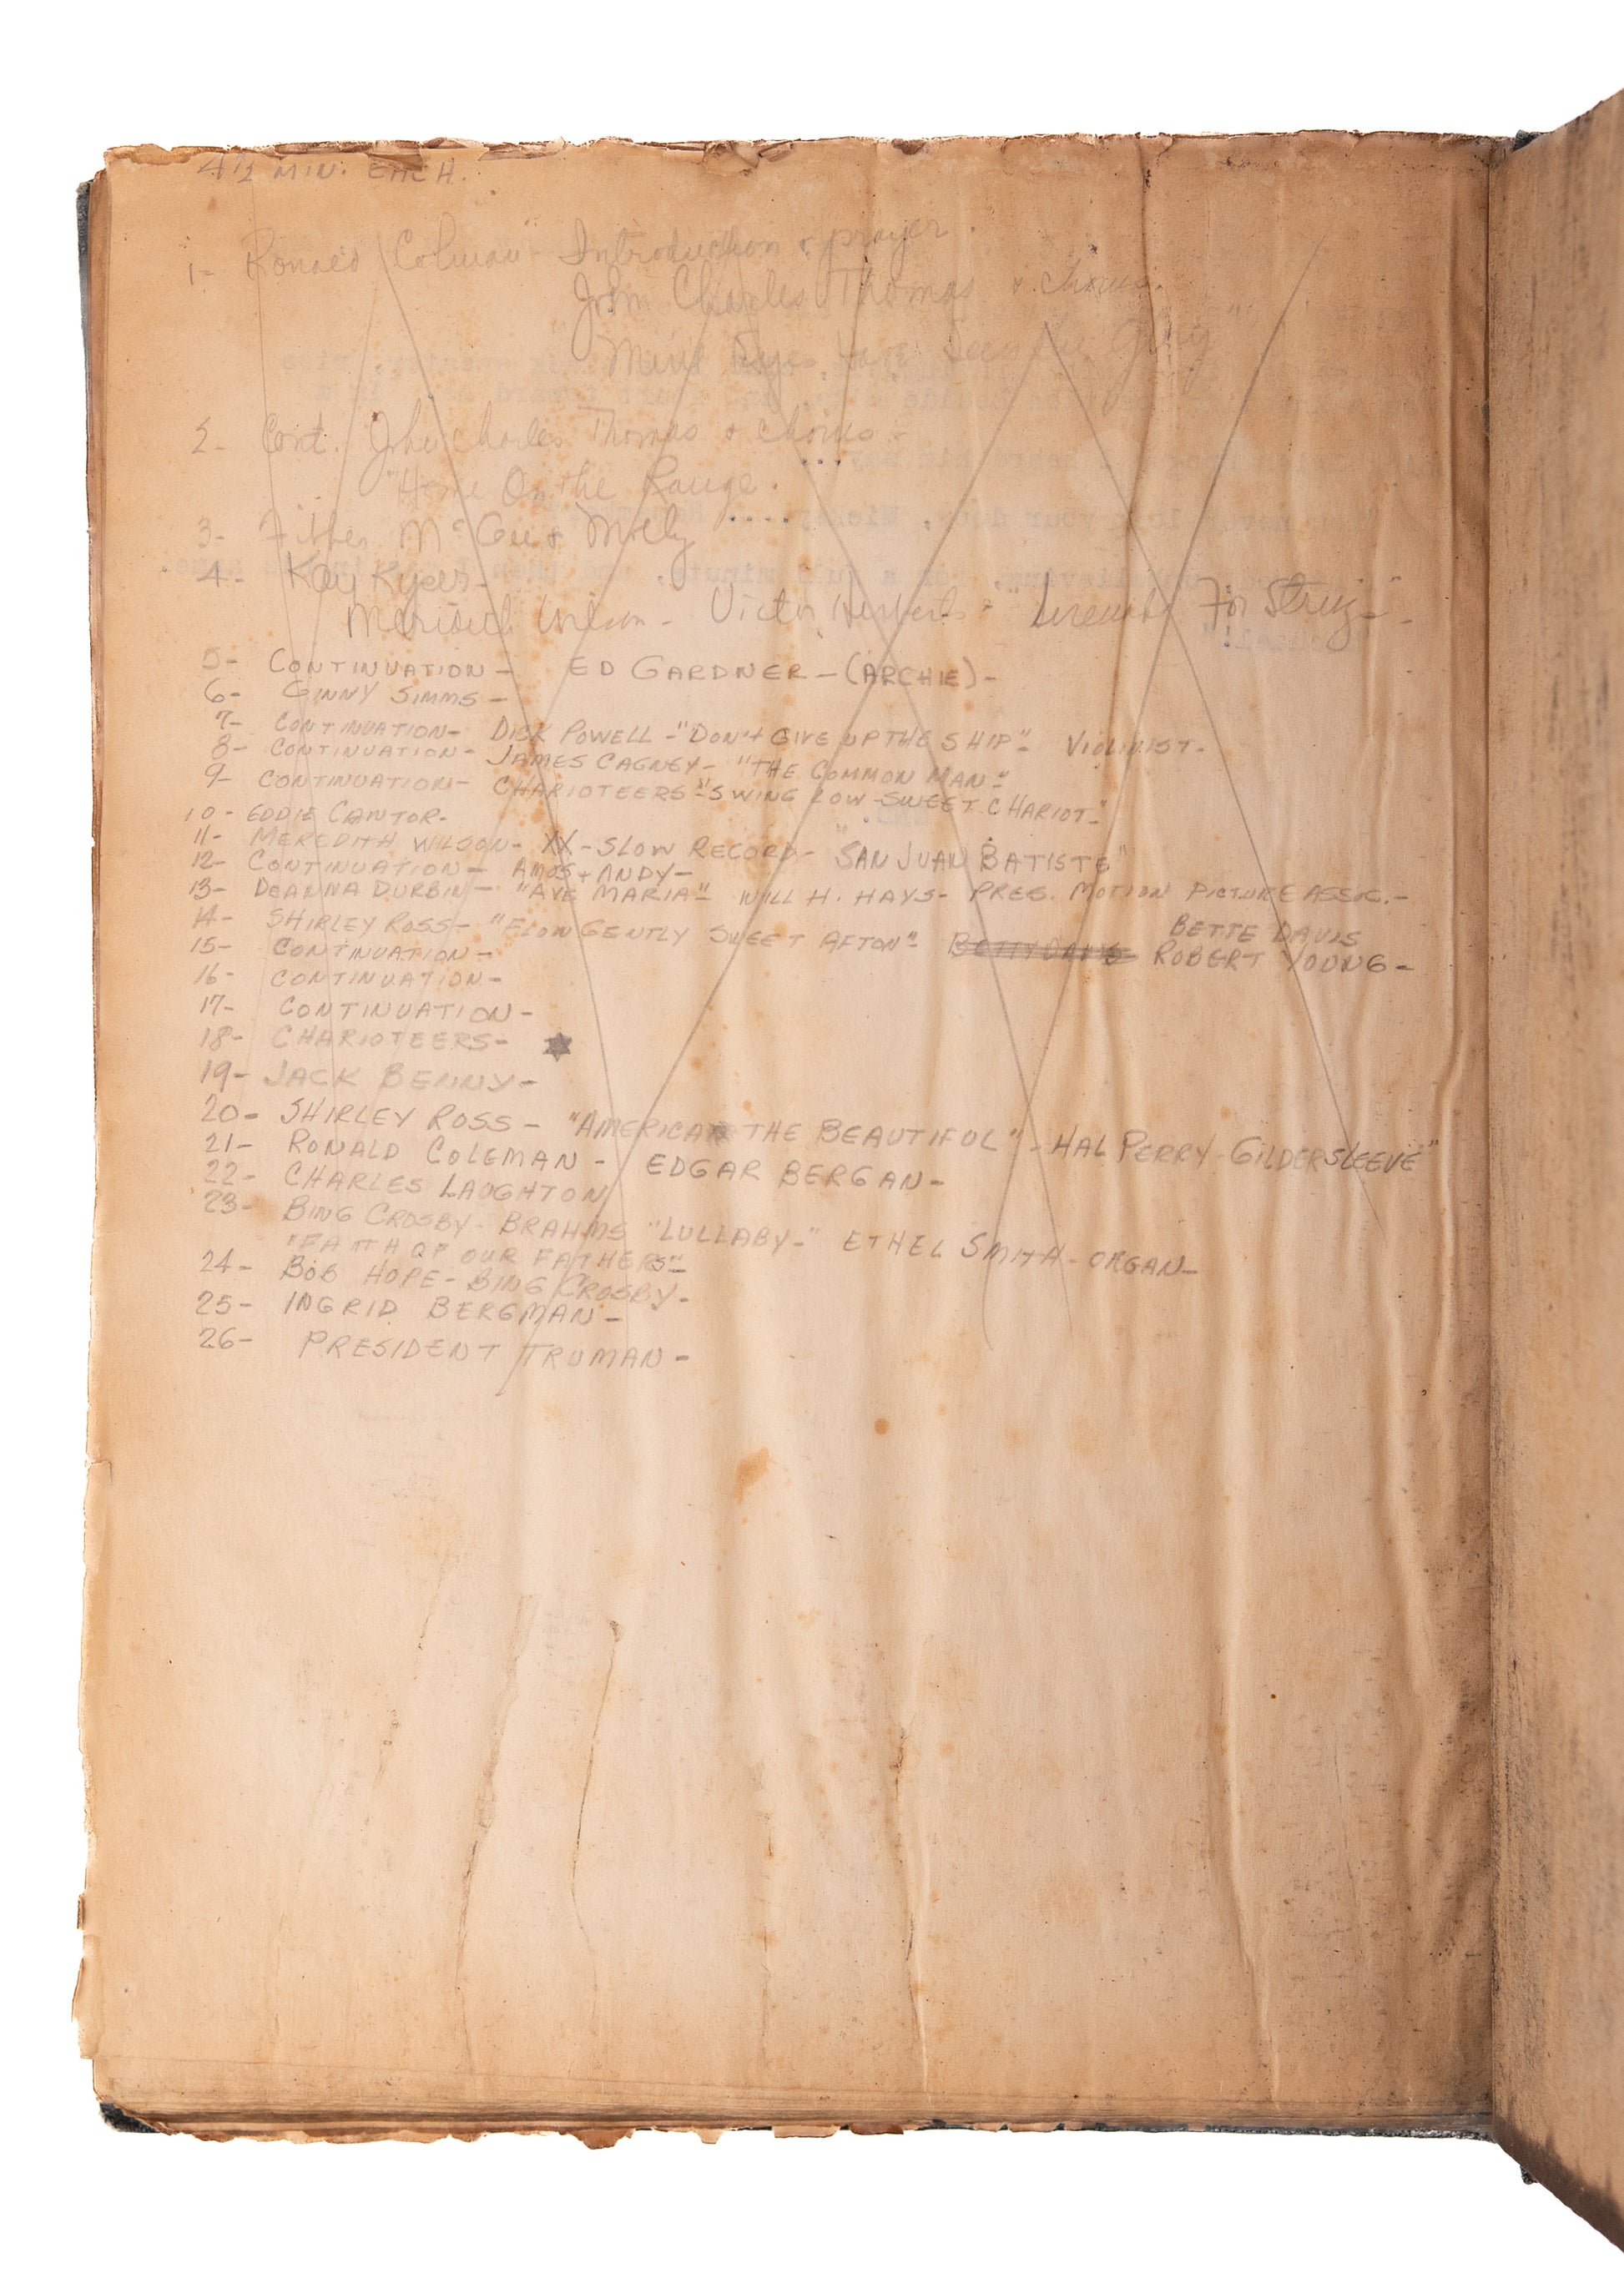 4 1/2 MIN. EACH.
1- Ronald Colman - Introduction & prayer.
John Charles Thomas & chorus.
"Mine Eyes have Seen the Glory"
2- Cont. John Charles Thomas & chorus -
"Home On the Range.
3- Fibber McGee & Molly
4- Kay Kyser -
Meridith Wilson - Victor Herberts - "Serenade For Strings" -
5- CONTINUATION - ED GARDNER - (ARCHIE) -
6- GINNY SIMMS -
7- CONTINUATION - DICK POWELL - "DON'T GIVE UP THE SHIP" - VIOLINIST -
8- CONTINUATION - JAMES CAGNEY - "THE COMMON MAN" -
9- CONTINUATION - CHARIOTEERS - "SWING LOW SWEET CHARIOT" -
10- EDDIE CANTOR -
11- MEREDITH WILSON - XX - SLOW RECORD - "SAN JUAN BATISTE"
12- CONTINUATION - AMOS + ANDY -
13- DEANNA DURBIN - "AVE MARIA" - WILL H. HAYS - PRES. MOTION PICTURE ASSOC. -
14- SHIRLEY ROSS - "FLOW GENTLY SWEET AFTON" - BETTE DAVIS
15- CONTINUATION - BETTY DAVIS ROBERT YOUNG -
16- CONTINUATION -
17- CONTINUATION -
18- CHARIOTEERS -
19- JACK BENNY -
20- SHIRLEY ROSS - "AMERICA THE BEAUTIFUL" - HAL PERRY - GILDERSLEEVE"
21- RONALD COLEMAN - EDGAR BERGAN -
22- CHARLES LAUGHTON
23- BING CROSBY - BRAHMS "LULLABY -" ETHEL SMITH - ORGAN -
"FAITH OF OUR FATHERS" -
24- BOB HOPE - BING CROSBY -
25- INGRID BERGMAN -
26- PRESIDENT TRUMAN -